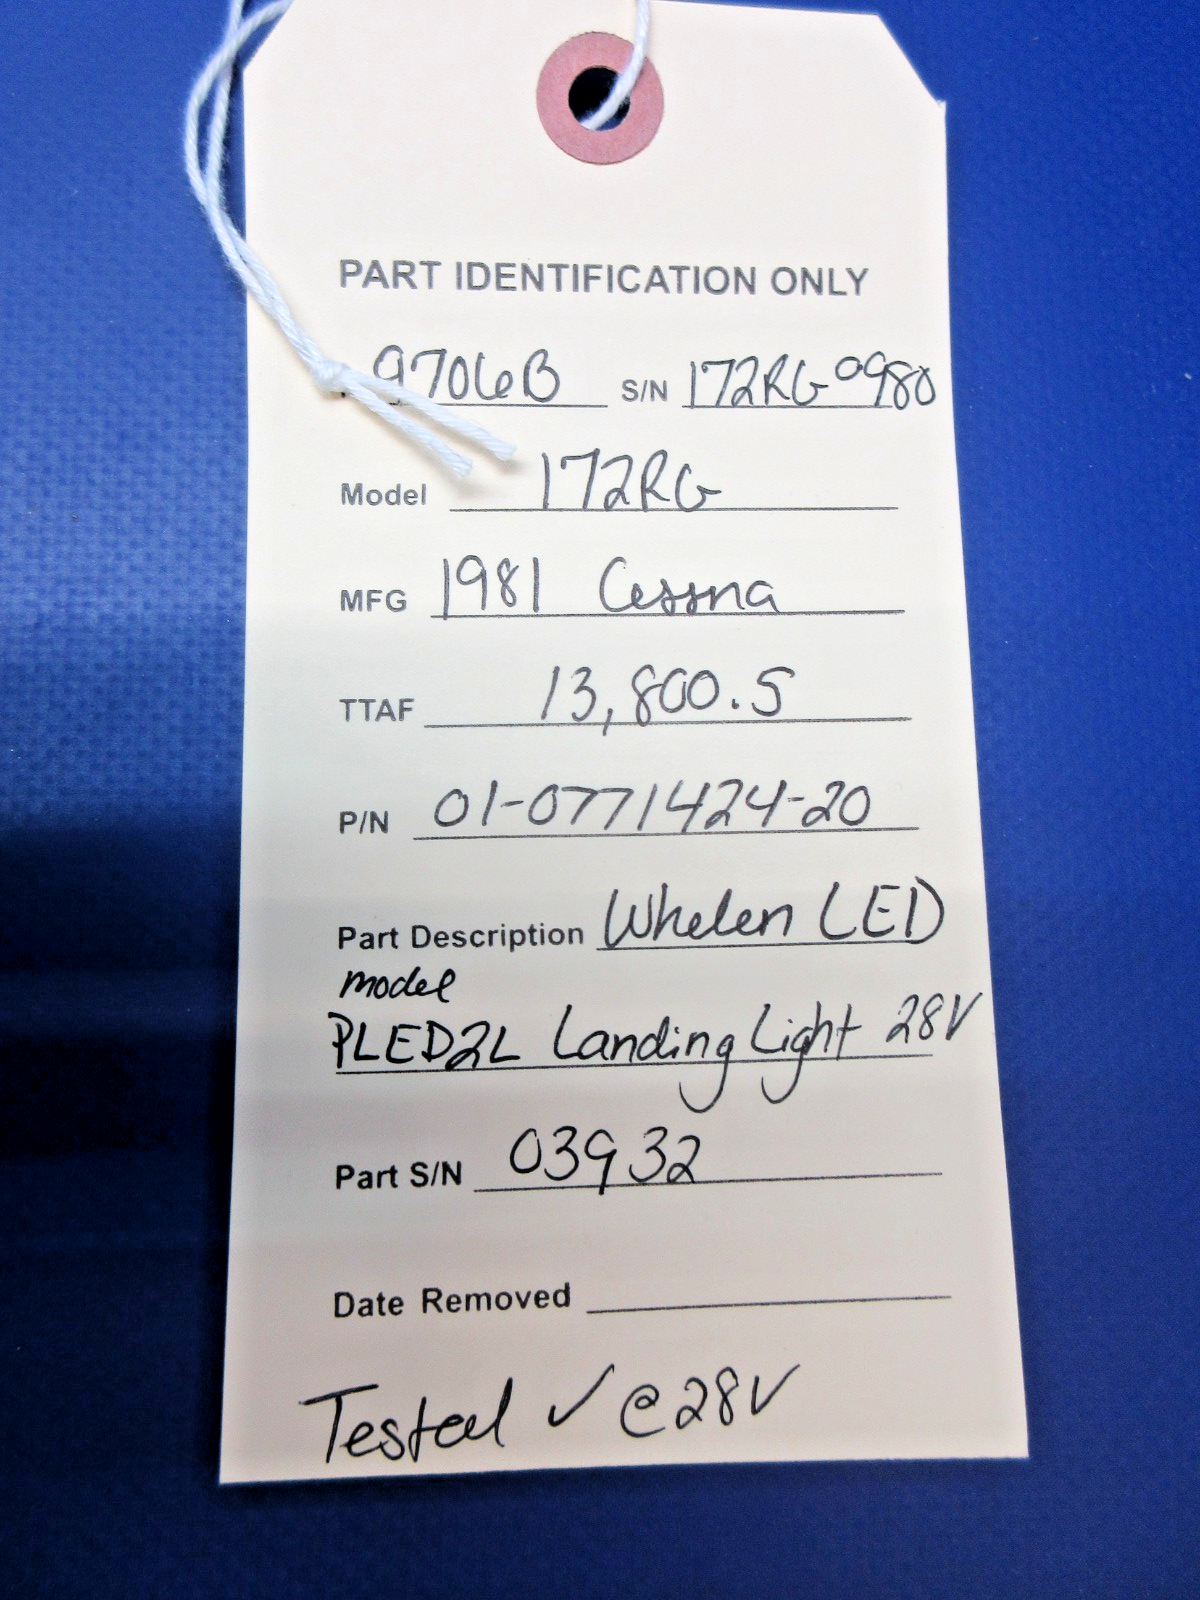 PART IDENTIFICATION ONLY
9706B S/N 172RG0980
Model 172RG
MFG 1981 Cessna
TTAF 13,800.5
P/N 01-0771424-20
Part Description Whelen LED
model
PLED2L Landing Light 28V
Part S/N 03932
Date Removed
Tested ✓ @ 28V